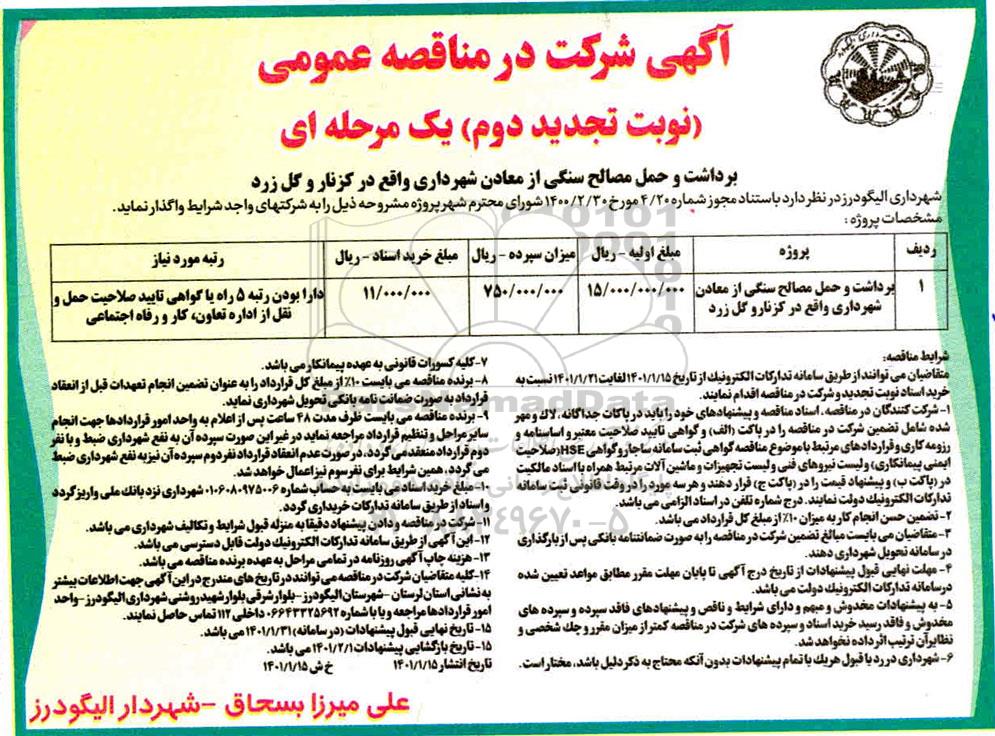 آگهی شرکت در مناقصه عمومی
(نوبت تجدید دوم) یک مرحله ای
برداشت و حمل مصالح سنگی از معادن شهرداری واقع در کزنار و گل زرد
شهرداری الیگودرز در نظر دارد باستناد مجوز شماره ۴/۲۰ مورخ ۱۴۰۰/۲/۳۰ شورای محترم شهر پروژه مشروحه ذیل را به شرکتهای واجد شرایط واگذار نماید.
مشخصات پروژه :
ردیف پروژه مبلغ اولیه - ریال میزان سپرده - ریال مبلغ خرید اسناد - ریال رتبه مورد نیاز
۱ برداشت و حمل مصالح سنگی از معادن ۱۵/۰۰۰/۰۰۰/۰۰۰ ۷۵۰/۰۰۰/۰۰۰ ۱۱/۰۰۰/۰۰۰ دارا بودن رتبه ۵ راه یا گواهی تایید صلاحیت حمل و
شهرداری واقع در کزنار و گل زرد نقل از اداره تعاون، کار و رفاه اجتماعی
شرایط مناقصه:
متقاضیان می توانند از طریق سامانه تدارکات الکترونیک از تاریخ ۱۴۰۱/۱/۱۵ لغایت ۱۴۰۱/۱/۲۱ نسبت به
خرید اسناد نوبت تجدید و شرکت در مناقصه اقدام نمایند.
۱- شرکت کنندگان در مناقصه، اسناد مناقصه و پیشنهادهای خود را باید در پاکات جداگانه، لاک و مهر
شده شامل تضمین شرکت در مناقصه را در پاکت (الف) و گواهی تایید صلاحیت معتبر و اساسنامه و
رزومه کاری و قراردادهای مرتبط با موضوع مناقصه گواهی ثبت سامانه ساجار و گواهی HSE (صلاحیت
ایمنی پیمانکاری) و لیست نیروهای فنی و لیست تجهیزات و ماشین آلات مرتبط همراه با اسناد مالکیت
در (پاکت ب) و پیشنهاد قیمت را در (پاکت ج) قرار دهند و هر سه مورد را در وقت قانونی ثبت سامانه
تدارکات الکترونیک دولت نمایند. درج شماره تلفن در اسناد الزامی می باشد.
۲- تضمین حسن انجام کار به میزان ۱۰٪ از مبلغ کل قرارداد می باشد.
۳- متقاضیان می بایست مبالغ تضمین شرکت در مناقصه را به صورت ضمانتنامه بانکی پس از بارگذاری
در سامانه تحویل شهرداری دهند.
۴- مهلت نهایی قبول پیشنهادات از تاریخ درج آگهی تا پایان مهلت مقرر مطابق مواعد تعیین شده
درسامانه تدارکات الکترونیک دولت می باشد.
۵- به پیشنهادات مخدوش و مبهم و دارای شرایط و ناقص و پیشنهادهای فاقد سپرده و سپرده های
مخدوش و فاقد رسید خرید اسناد و سپرده های شرکت در مناقصه کمتر از میزان مقرر و چک شخصی و
نظایر آن ترتیب اثر داده نخواهد شد.
۶- شهرداری در رد یا قبول هریک یا تمام پیشنهادات بدون آنکه محتاج به ذکر دلیل باشد، مختار است.
۷- کلیه کسورات قانونی به عهده پیمانکار می باشد.
۸- برنده مناقصه می بایست ۱۰٪ از مبلغ کل قرارداد را به عنوان تضمین انجام تعهدات قبل از انعقاد
قرارداد به صورت ضمانت نامه بانکی تحویل شهرداری نماید.
۹- برنده مناقصه می بایست ظرف مدت ۴۸ ساعت پس از اعلام به واحد امور قراردادها جهت انجام
سایر مراحل و تنظیم قرارداد مراجعه نماید در غیر این صورت سپرده آن به نفع شهرداری ضبط و با نفر
دوم قرارداد منعقد می گردد. در صورت عدم انعقاد قرارداد نفر دوم سپرده آن نیز به نفع شهرداری ضبط
می گردد، همین شرایط برای نفر سوم نیز اعمال خواهد شد.
۱۰- مبلغ خرید اسناد می بایست به حساب شماره ۰۱۰۶۰۸۰۹۷۵۰۰۶ شهرداری نزد بانک ملی واریز گردد
و اسناد از طریق سامانه تدارکات خریداری گردد.
۱۱- شرکت در مناقصه و دادن پیشنهاد دقیقا به منزله قبول شرایط و تکالیف شهرداری می باشد.
۱۲- این آگهی از طریق سامانه تدارکات الکترونیک دولت قابل دسترسی می باشد.
۱۳- هزینه چاپ آگهی روزنامه در تمامی مراحل به عهده برنده مناقصه می باشد.
۱۴- کلیه متقاضیان شرکت در مناقصه می توانند در تاریخ های مندرج در این آگهی جهت اطلاعات بیشتر
به نشانی استان لرستان - شهرستان الیگودرز - بلوار شرقی بلوار شهید روشنی شهرداری الیگودرز - واحد
امور قراردادها مراجعه و یا با شماره ۰۶۶۴۳۳۲۵۶۹۲ داخلی ۱۱۲ تماس حاصل نمایند.
۱۵- تاریخ نهایی قبول پیشنهادات (در سامانه) ۱۴۰۱/۱/۳۱ می باشد.
۱۵- تاریخ بازگشایی پیشنهادات ۱۴۰۱/۲/۱ می باشد.
تاریخ انتشار ۱۴۰۱/۱/۱۵ خ ش ۱۴۰۱/۱/۱۵
علی میرزا بسحاق - شهردار الیگودرز